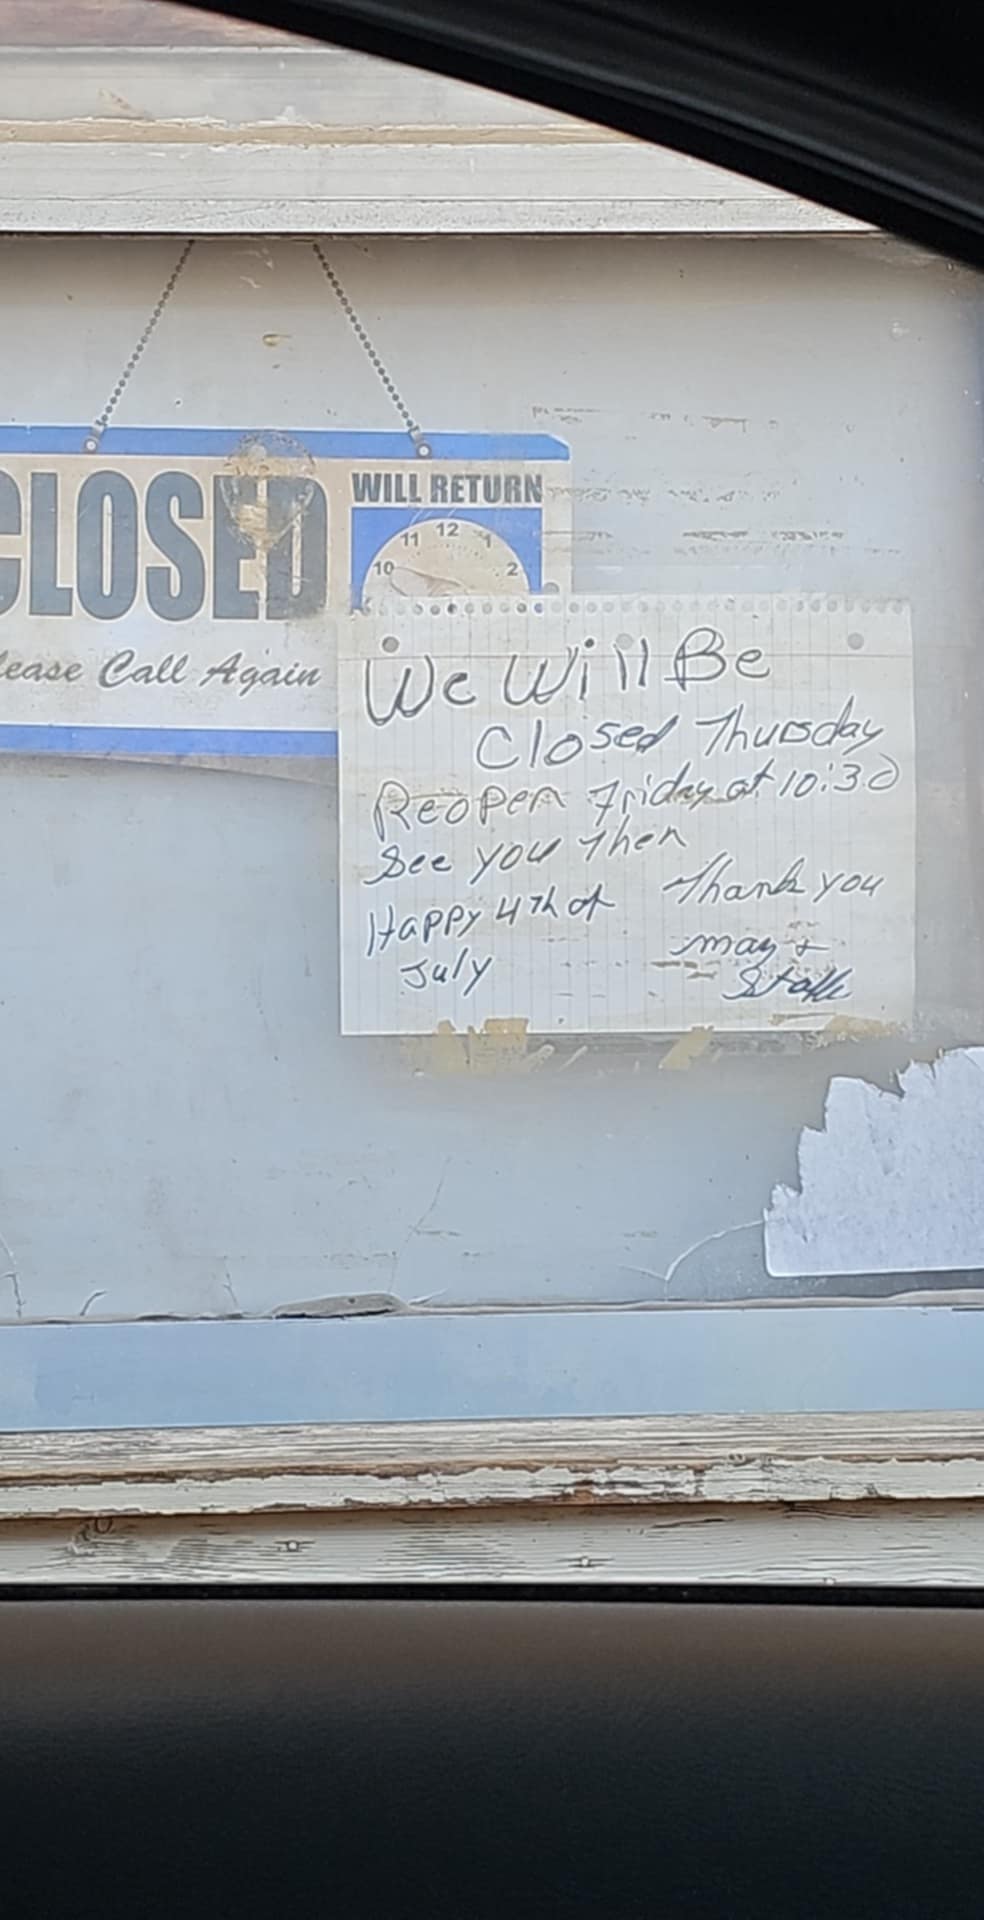 CLOSED
WILL RETURN
11 12 1
10 2
lease Call Again
We Will Be
Closed Thursday
Reopen Friday at 10:30
See you then
Thank you
Happy 4th of
July
May +
Staff